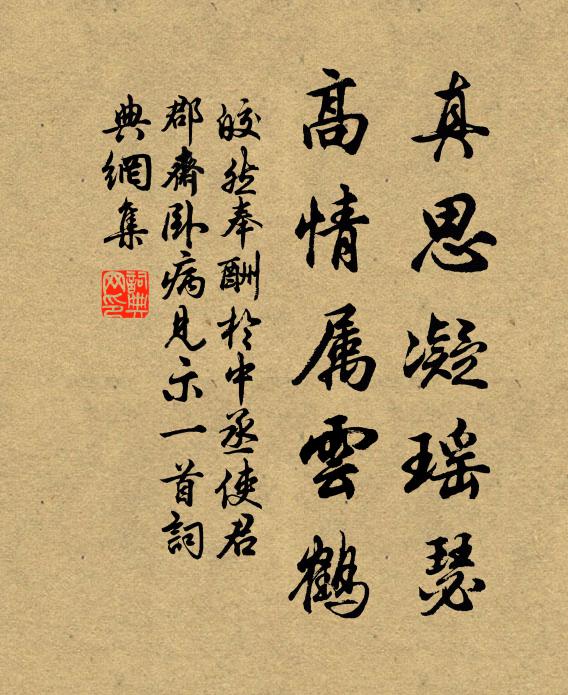 真思凝瑶瑟
高情属雲鶴
皎然奉酬於中丞使君
郡齋卧病見示一首詞
典網集
詞典网印